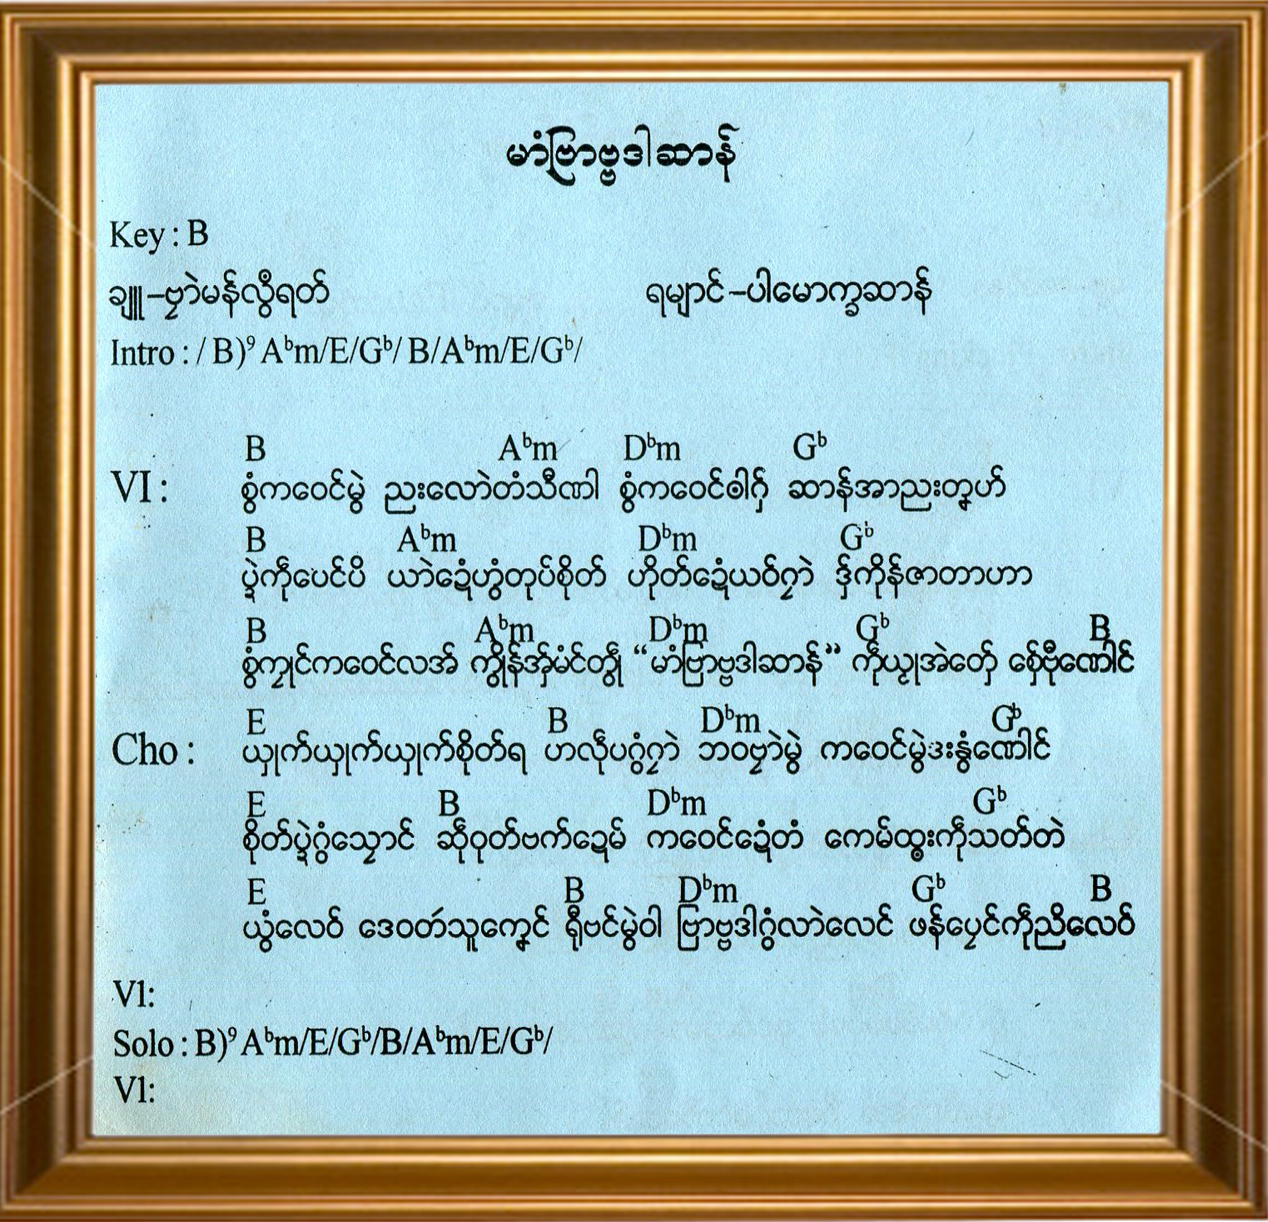 မာံဗြာဗ္ဗဒါဆာန်
Key : B
ချူ-ဗၠာဲမန်လွဳရတ် ရမျာင်-ပါမောက္ခဆာန်
Intro : / B)⁹ Aᵇm/E/Gᵇ/ B/Aᵇm/E/Gᵇ/
B Aᵇm Dᵇm Gᵇ
VI : စွံကဝေင်မွဲ ညးလောဲတံသီဏါ စွံကဝေင်ၜါဂှ် ဆာန်အာညးတၞဟ်
B Aᵇm Dᵇm Gᵇ
ပ္ဍဲကဵုပေင်ပိ ယာဲဍေံဟွံတုပ်စိုတ် ဟိုတ်ဍေံယဝ်ဂၠာဲ ဒှ်ကိုန်ဇာတာဟာ
B Aᵇm Dᵇm Gᵇ B
စွံကၠုင်ကဝေင်လအ် ကွိုန်အှ်မံင်တွဵု “မာံဗြာဗ္ဗဒါဆာန်” ကဵုယၟုအဲတှေ် သှေ်ဗီုဏောင်
E B Dᵇm Gᵇ
Cho : ယှုက်ယှုက်ယှုက်စိုတ်ရ ဟလဵုပဂွံဂၠာဲ ဘဝဗၠာဲမွဲ ကဝေင်မွဲဒးနွံဏောင်
E B Dᵇm Gᵇ
စိုတ်ပ္ဍဲဂွံသၠောင် ဆဵုဝုတ်ဗက်ဍေမ် ကဝေင်ဍေံတံ ကေမ်ထ္ပးကဵုသတ်တဲ
E B Dᵇm Gᵇ B
ယွံလေဝ် ဒေဝတဴသူကၞေင် ရီုဗင်မွဲဝါ ဗြာဗ္ဗဒါဂွံလာဲလေင် ဖန်ပၠေင်ကဵုညိလေဝ်
V1:
Solo : B)⁹ Aᵇm/E/Gᵇ/B/Aᵇm/E/Gᵇ/
V1: